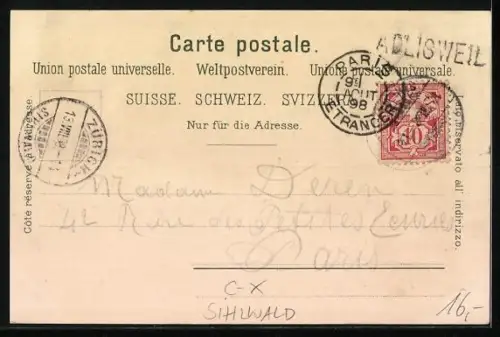 Carte postale.
ADLISWEIL
Union postale universelle. Weltpostverein. Unione postale universale.
SUISSE. SCHWEIZ. SVIZZERA.
Nur für die Adresse.
PARIS
AOUT
98
ETRANGER
10
ZÜRICH
Côté réservé à l'adresse
riservato all' indirizzo.
Madame Deren
Rue des Petites Ecuries
Paris
C-X
SIHLWALD
16,-